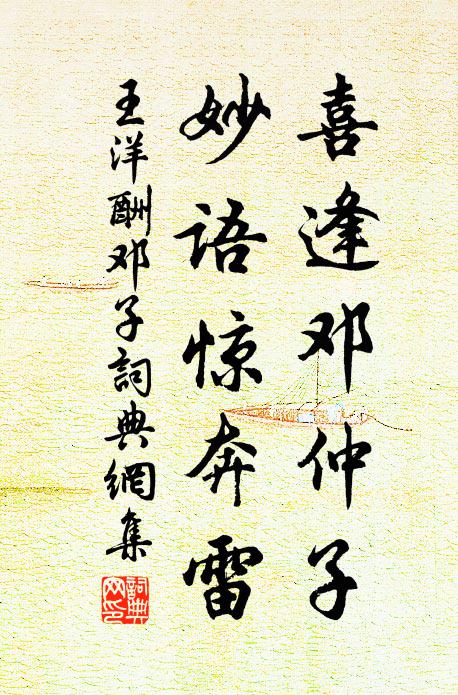 喜逢邓仲子
妙语惊奔雷
王洋酬邓子詞典網集
詞典网印